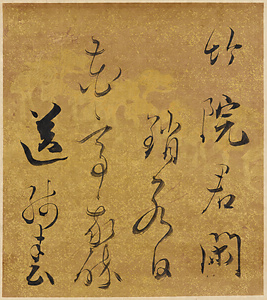 竹院君閑
銷永日
花亭我酔
送残春